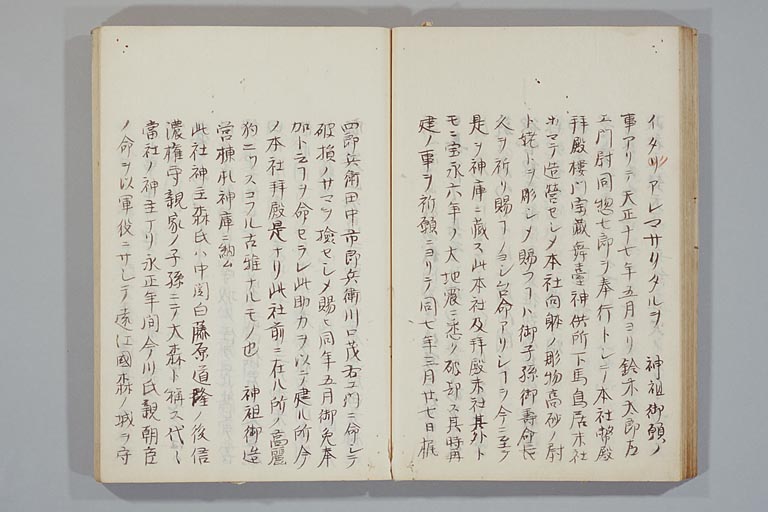 イタリアレマサリタルヲ 神祖御願ノ
事アリテ天正十七年五月ヨリ鈴木太郎左
エ門尉同惣七郎ヲ奉行トシテ本社幣殿
拝殿楼門宝蔵舞臺神供所下馬鳥居末社
ホマテ造営セシメ本社向拝ノ彫物高砂ノ尉
ト姥トヲ彫シメ賜フハ御子孫御壽命長
久ヲ祈リ賜フノヨシ台命アリシヿヲ今ニ至ク
是ヲ神庫ニ蔵ス此本社及拝殿末社其外ト
モニ宝永六年ノ大地震ニ悉ク破却ス其時再
建ノ事ヲ祈願ニヨリテ同七年三月廿七日梶
四郎兵衛田中市郎兵衛川口茂右エ門ニ命シテ
破損ノサマヲ検セシメ賜ヒ同年五月御免奉
加ト云フヲ命セラレ此助力ヲ以テ建ル所今
ノ本社拝殿是ナリ此社前ニ在ル所ノ高麗
狗ニワスコフル古雅ナルモノ也 神祖御造
営棟札神庫ニ納ム
此社神主森氏ハ中関白藤原道隆ノ後信
濃権守親家ノ子孫ニテ大森ト稱ス代々
當社ノ神主タリ永正年間今川氏親朝臣
ノ命ヲ以軍役ニサシテ遠江國森ノ城ヲ守